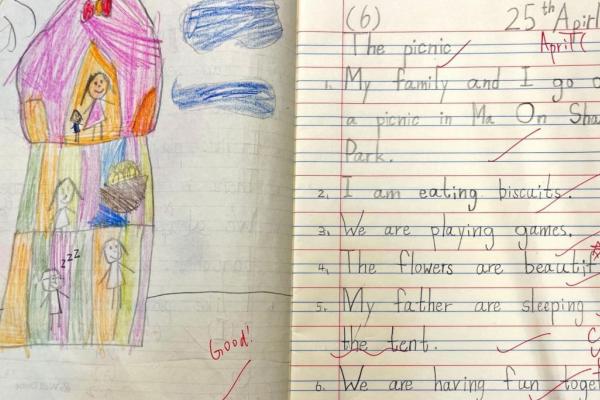 zzz
Good!
(6) 25th Apirl
April
The picnic
1. My family and I go
a picnic in Ma On Sha
Park.
2. I am eating biscuits.
3. We are playing games.
4. The flowers are beautif
5. My father are sleeping
the tent.
6. We are having fun toget